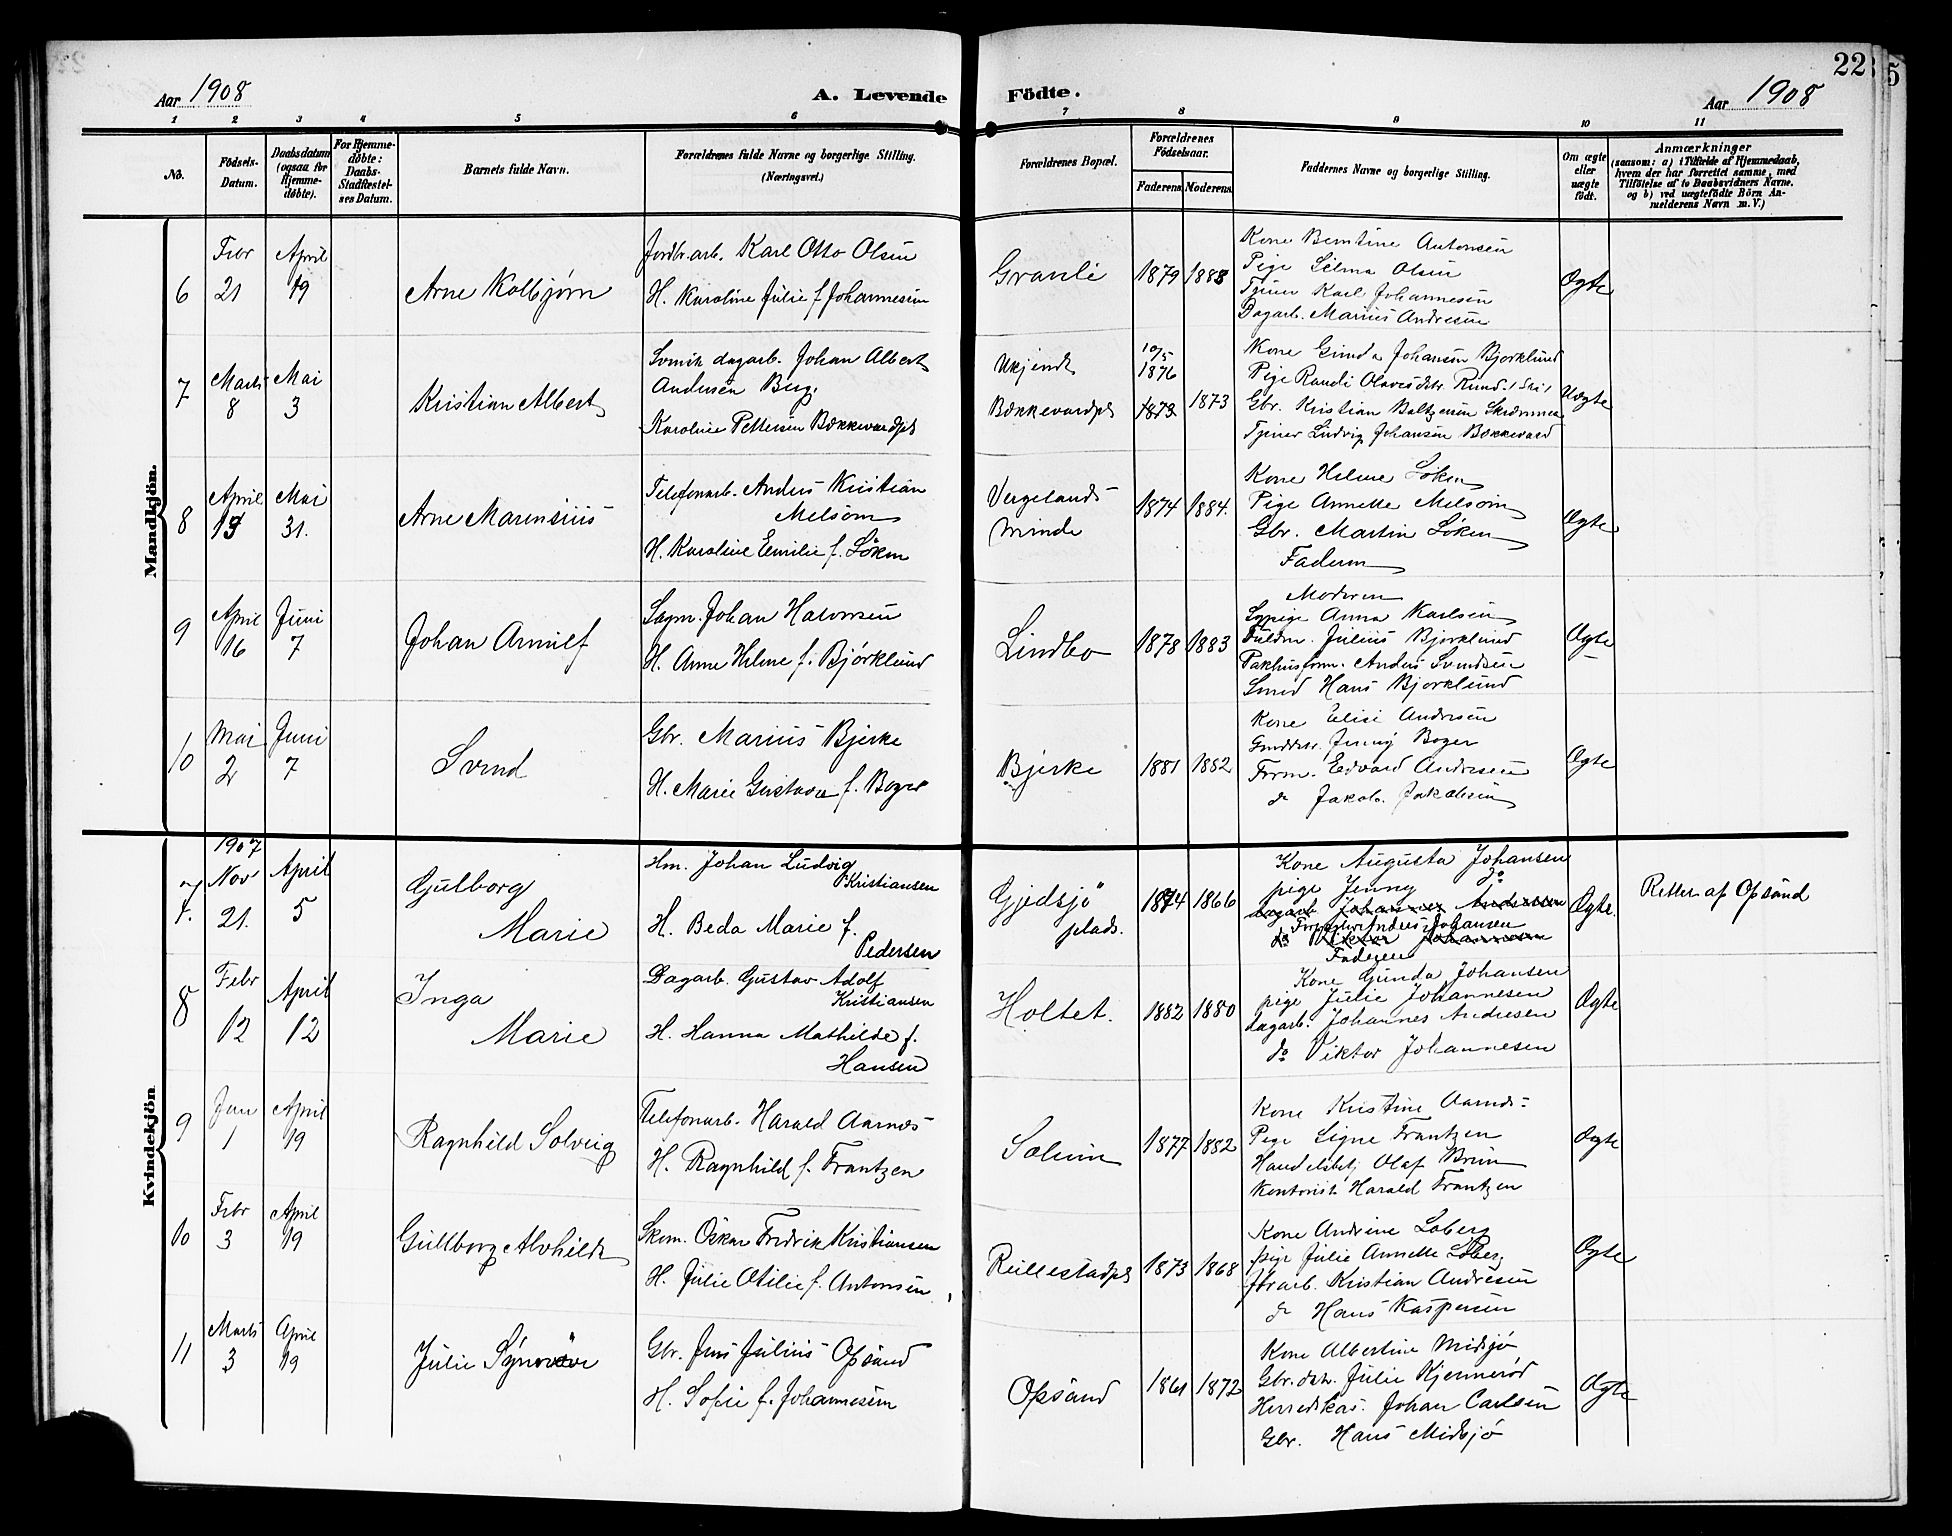 Aar 1908
A. Levende Födte.
Aar 1908
22
5
1 2 3 4 5 6 7 8 9 10 11
No.
Födsels-Datum.
Daabsdatum (ogsaa for Hjemme-döbte).
For Hjemme-döbte: Daabs-Stadfæstel-ses Datum.
Barnets fulde Navn.
Forældrenes fulde Navne og borgerlige Stilling. (Næringsvei.)
Forældrenes Bopæl.
Forældrenes Födselsaar.
Faderens. Moderens.
Faddernes Navne og borgerlige Stilling.
Om ægte eller uægte födt.
Anmærkninger
(saasom: a) i Tilfælde af Hjemmedaab,
hvem der har forrettet samme, med
Tilföielse af to Daabsvidners Navne.
og b) ved uægtefödte Börn An-
melderens Navn m. V.)
Mandkjön.
6
Febr 21
April 19
Arne Kolbjørn
Jordbr.arb. Karl Otto Olsen
H. Karoline Julie f. Johannesen
Granli
1879 1888
Kone Berntine Antonsen
Pige Selma Olsen
Tjener Karl Johannesen
Dagarb. Marius Andresen
Ægte
7
Marts 8
Mai 3
Kristian Albert
Svensk dagarb. Johan Albert
Andersen Berg.
Karoline Pettersen Bækkevardpls
Ukjendt
Bækkevardpls
10/5 1876
1873 1873
Kone Gunda Johansen Bjorklund
Pige Randi Olavesdtr. Rund. (Ski)
Gbr. Kristian Baltzersen
Tjener Ludvig Johansen Bækkevard
Uægte
8
April 15
Mai 31.
Arne Marensius
Telefonarb. Anders Kristian
Melsom
H. Karoline Emilie f. Löken
Vergelands
minde
1874 1884.
Kone Helene Löken
Pige Annette Melsom
Gbr. Martin Löken
Faderen
Ægte
9
April 16
Juni 7
Johan Arnulf
Sagm. Johan Halvorsen
H. Anne Helene f. Björklund
Lindbo
1878 1883
Moderen
Sypige Anna Karlsen
Fuldm. Julius Bjorklund
Pakhusform. Anders Svendsen
Smed Hans Bjorklund
Ægte
10
Mai 2
Juni 7
Svend
Gbr. Marius Bjerke
H. Marie Gustava f. Boger
Bjerke
1881 1882
Kone Elise Andresen
Gmddtr. Jenny Boger
Form. Edvard Andresen
do Jakob Jakobsen
Ægte
Kvindekjön
7.
1907
Nov 21.
April 5
Gulborg
Marie
Hm. Johan Ludvig
Kristiansen
H. Beda Marie f.
Pedersen
Gjedsjö
plads.
1874 1866
Kone Augusta Johansen
pige Jenny do
dagarb. Johannes Andresen
Forpagter Anders Johansen
do Viktor Johannesen
Faderen
Ægte.
Rettet af Opsand
8
Febr 12
April 12
Inga
Marie
Dagarb. Gustav Adolf
Kristiansen
H. Hanna Mathilde f.
Hansen
Holtet.
1882 1880
Kone Gunda Johansen
pige Julie Johannesen
dagarb. Johannes Andresen
do Viktor Johannesen
Ægte
9
Jan 1
April 19
Ragnhild Solveig
Telefonarb. Harald Aarnæs
H. Ragnhild f. Frantzen
Solheim
1877 1882
Kone Kristine Aarnæs
Pige Signe Frantzen
Handelsbetj. Olaf Bruun
Kontorist Harald Frantzen
Ægte
10
Febr 3
April 19
Gullborg Alvhilde
Skom. Oskar Fredrik Kristiansen
H. Julie Otilie f. Antonsen
1873 1868
Kone Andrine Loberg
pige Julie Annette Løberg
Jbrarb. Kristian Andresen
do Hans Kaspersen
Ægte
11
Marts 3
April 19
Julie Synnøve
Gbr. Jens Julius Opsand
H. Sofie f. Johannesen
Opsand
1861 1872
Kone Albertine Midsjø
Gbr.dtr. Julie Kjennerød
Herredskas. Johan Carlsen
Gbr. Hans Midsjø
Ægte